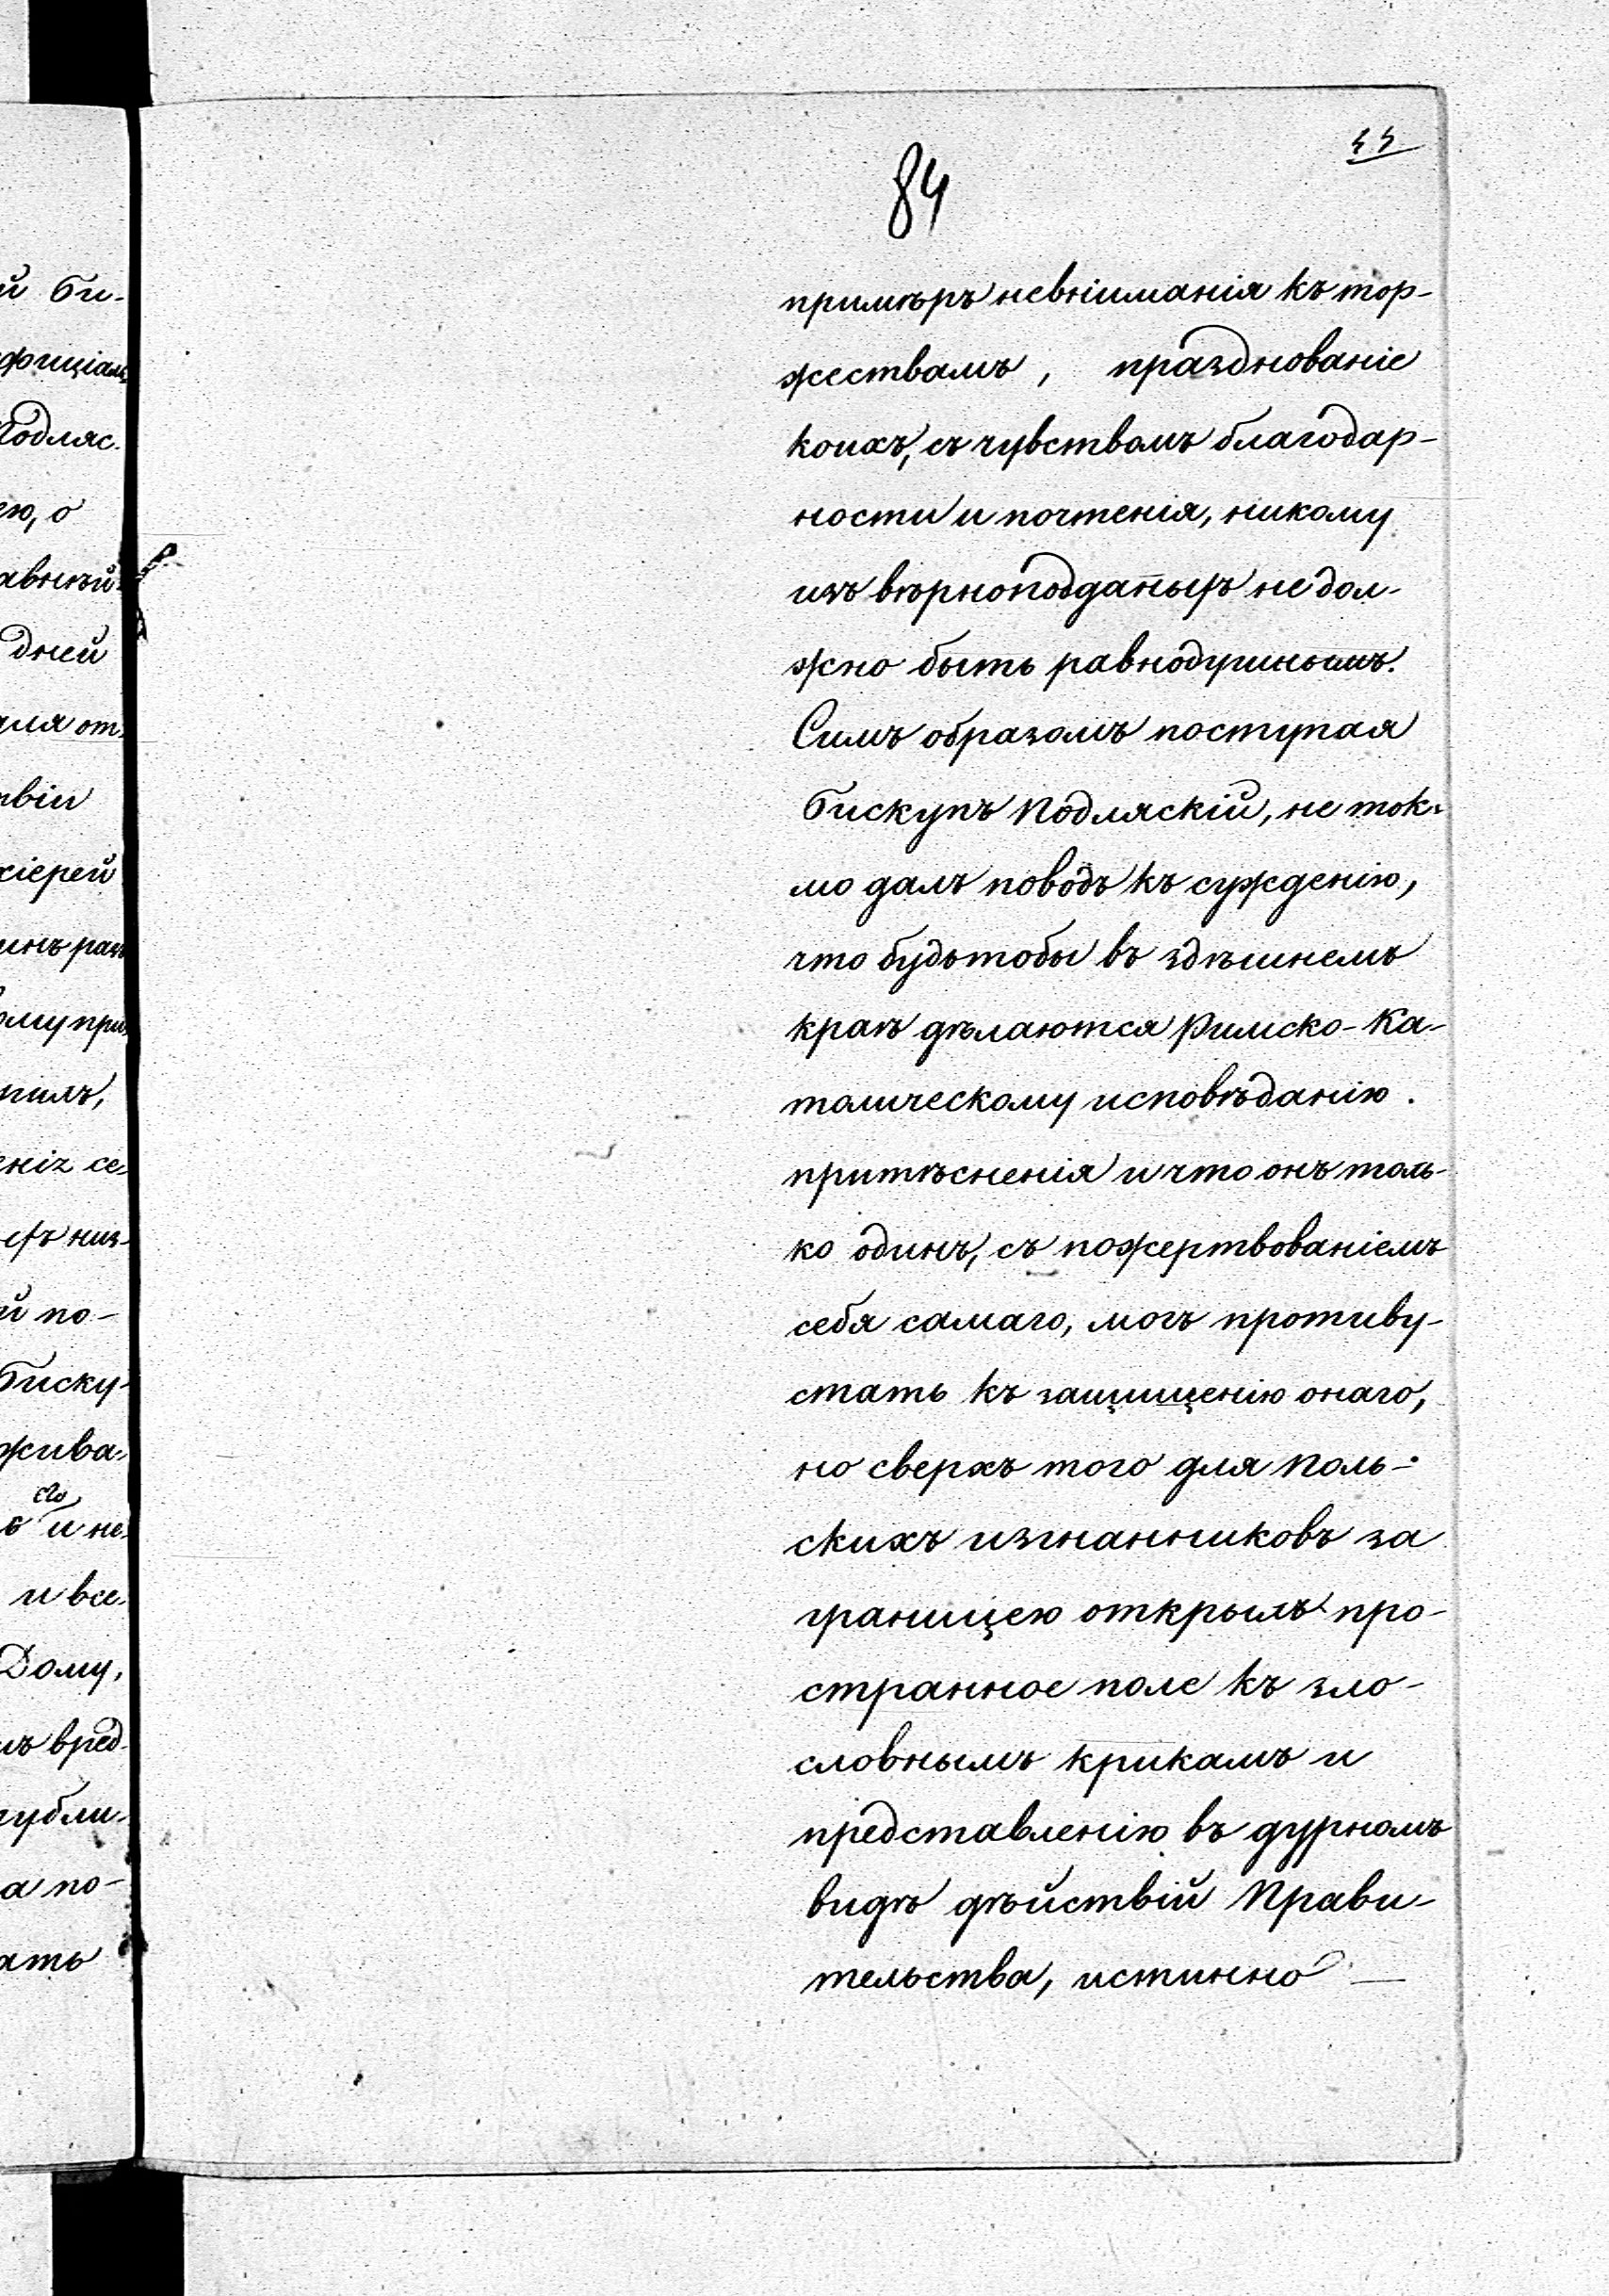 84
примѣръ невниманія къ тор-
жествамъ, празднованіе
коихъ, съ чувствомъ благодар-
ности и почтенія, никому
изъ вѣрноподданыхъ не дол-
жно быть равнодушнымъ.
Симъ образомъ поступая
Бискупъ Подляскій, не ток-
мо далъ поводъ къ сужденію,
что будьтобы въ здѣшнемъ
краѣ дѣлаются Римско-Ка-
толическому исповѣданію.
притѣсненія и что онъ толь-
ко одинъ, съ пожертвованіемъ
себя самаго, могъ противу-
стать къ защищенію онаго,
но сверхъ того для Поль-
скихъ изгнанниковъ за
границею открылъ про-
странное поле къ зло-
словнымъ крикамъ и
представленію въ дурномъ
видѣ дѣйствій Прави-
тельства, истинно